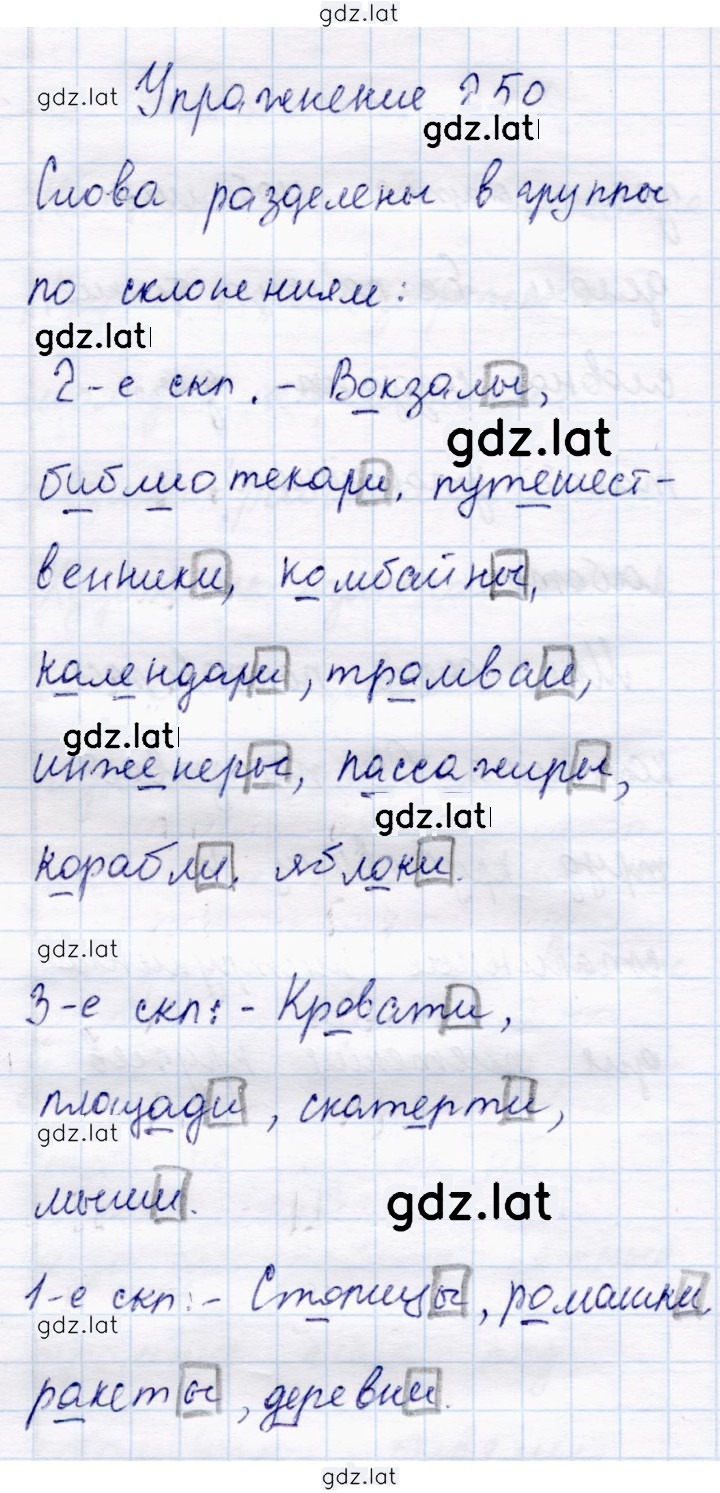 gdz.lat
gdz.lat Упражнение 250
gdz.lat
Слова разделены в группы
по склонениям:
gdz.lat
2-е скл. - Вокзалы,
gdz.lat
библиотекари, путешест-
венники, комбайны,
календари, трамваи,
gdz.lat
инженеры, пассажиры,
gdz.lat
корабли, яблоки.
gdz.lat
3-е скл: - Кровати,
площади, скатерти,
gdz.lat
мыши.
gdz.lat
1-е скл: - Столицы, ромашки,
gdz.lat
ракеты, деревни.
gdz.lat